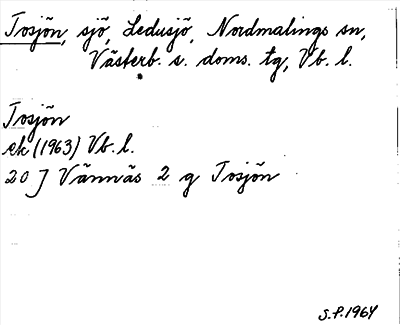 Tosjön, sjö, Ledusjö, Nordmalings sn,
Västerb. s. doms. tg, Vb. l.
Tosjön
ek (1963) Vb. l.
20 J Vännäs 2 g Tosjön
S.P. 1964